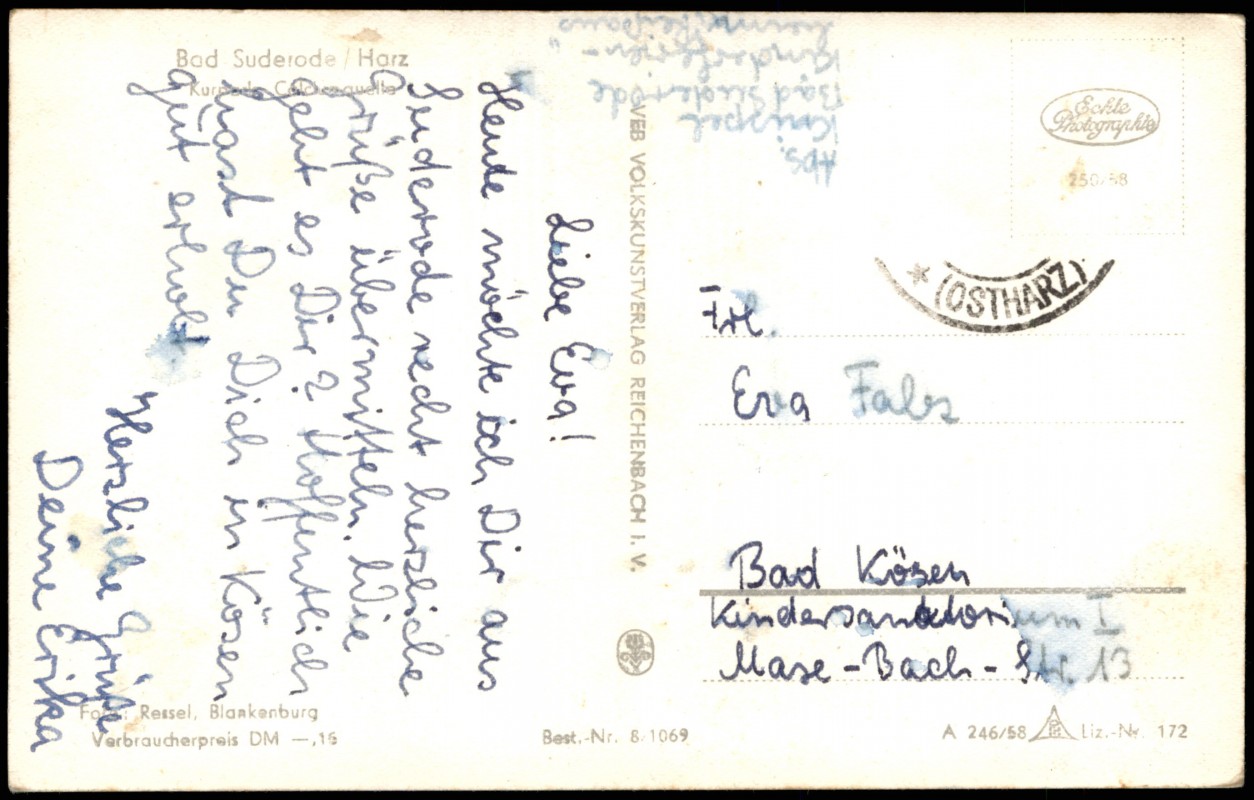 Bad Suderode / Harz
Kurbad Calciumquelle
Liebe Eva!
Heute möchte ich Dir aus
Suderode recht herzliche
Grüße übermitteln. Wie
geht es Dir? Hoffentlich
hast Du Dich in Kösen
gut erholt.
Herzliche Grüße
Deine Erika
Foto: Ressel, Blankenburg
Verbraucherpreis DM —,15
VEB VOLKSKUNSTVERLAG REICHENBACH I. V.
Best.-Nr. 8/1069
Abs.
Knippel
Bad Suderode
Kinderferien-
Echte
Photographie
250/58
* (OSTHARZ)
Frl.
Eva Fabs
Bad Kösen
Kindersanatorium I
Maxe-Bach-Str. 13
A 246/58
Liz.-Nr. 172